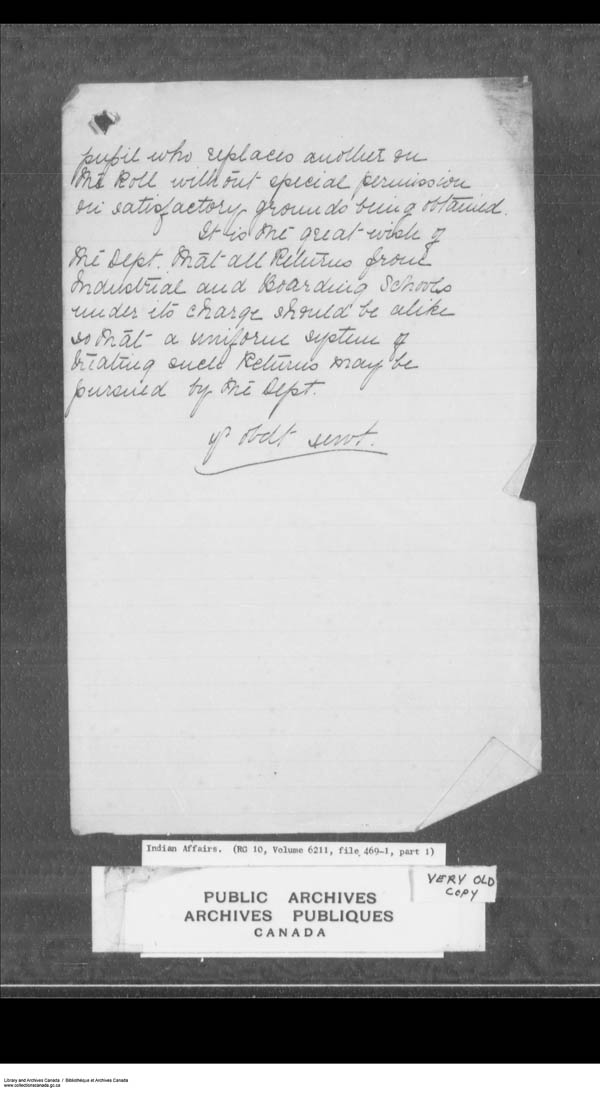 pupil who replaces another on
the Roll without special permission
on satisfactory grounds being obtained.
It is the great wish of
the Dept. that all Returns from
Industrial and Boarding Schools
under its charge should be alike
so that a uniform system of
treating such Returns may be
pursued by the Dept.
yr obdt servt.
Indian Affairs. (RG 10, Volume 6211, file 469-1, part 1)
VERY OLD
COPY
PUBLIC ARCHIVES
ARCHIVES PUBLIQUES
CANADA
Library and Archives Canada / Bibliothèque et Archives Canada
www.collectionscanada.gc.ca